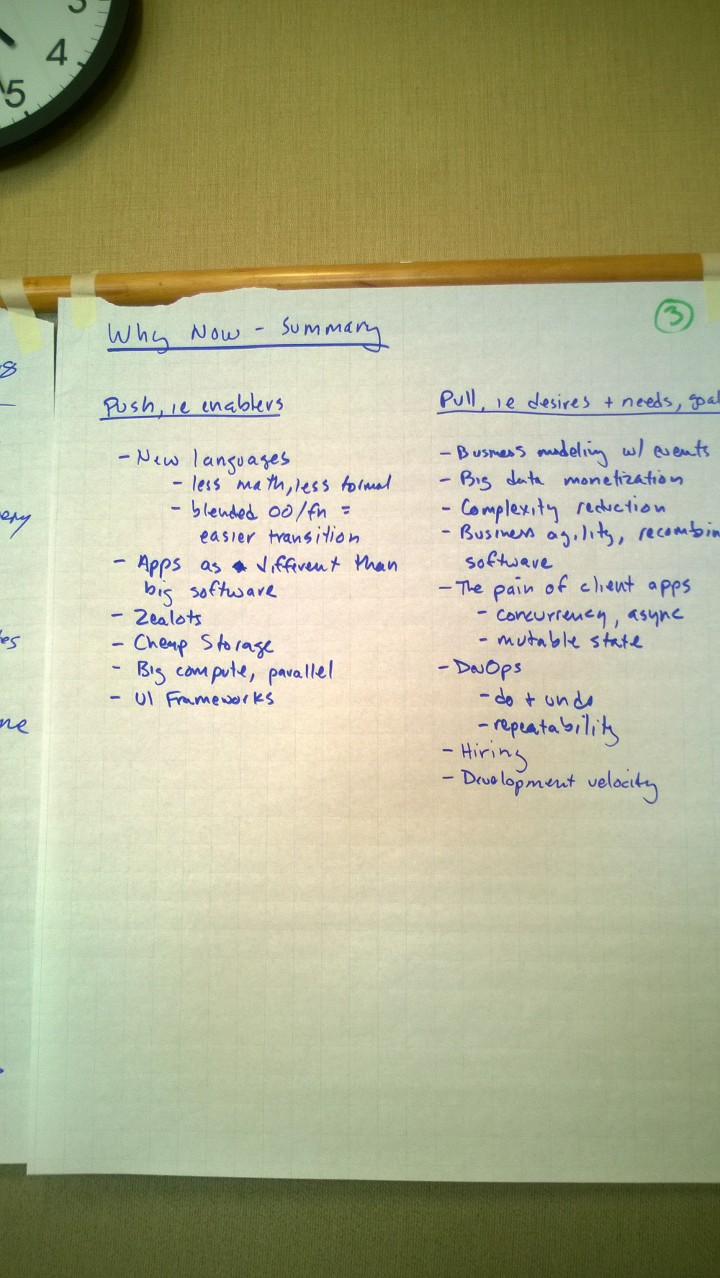 3
4
5
Why Now - Summary
3
Push, ie enablers
- New languages
- less math, less formal
- blended OO/fn =
easier transition
- Apps as different than
big software
- Zealots
- Cheap Storage
- Big compute, parallel
- UI Frameworks
Pull, ie desires + needs, goal
- Business modeling w/ events
- Big data monetization
- Complexity reduction
- Business agility, recombin
software
- The pain of client apps
- concurrency, async
- mutable state
- DevOps
- do + undo
- repeatability
- Hiring
- Development velocity